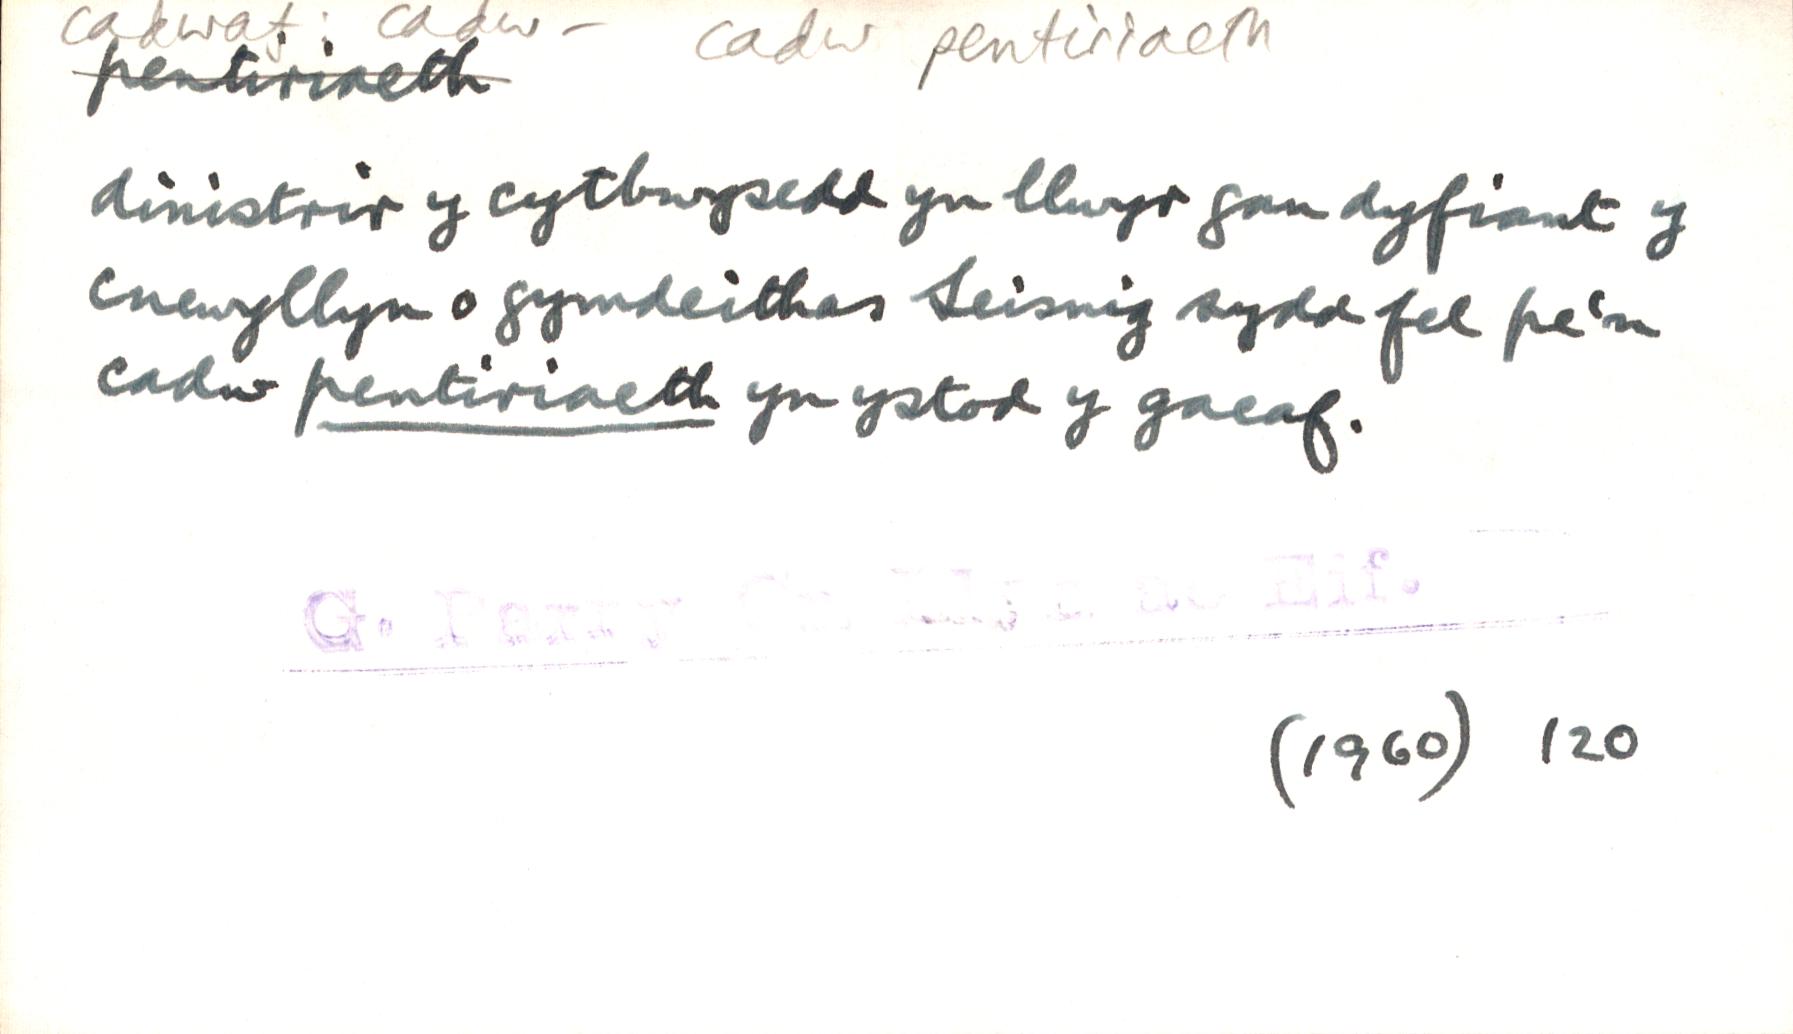 cadwaf: cadw – cadw pentiriaeth
pentiriaeth
dinistrir y cytbwysedd yn llwyr gan dyfiant y
cnewyllyn o gymdeithas Seisnig sydd fel pe'n
cadw pentiriaeth yn ystod y gaeaf.
G. Parry Cn Llŷn ac Eif.
(1960) 120